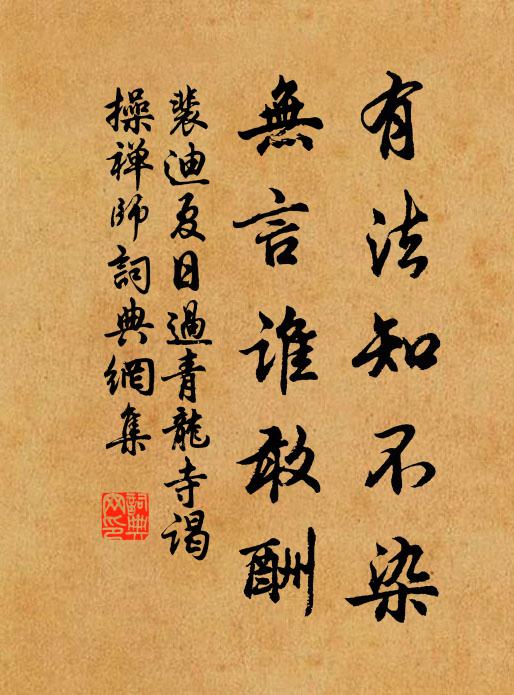 有法知不染
無言誰敢酬
裴迪夏日過青龍寺謁
操禅師詞典網集
詞典网印